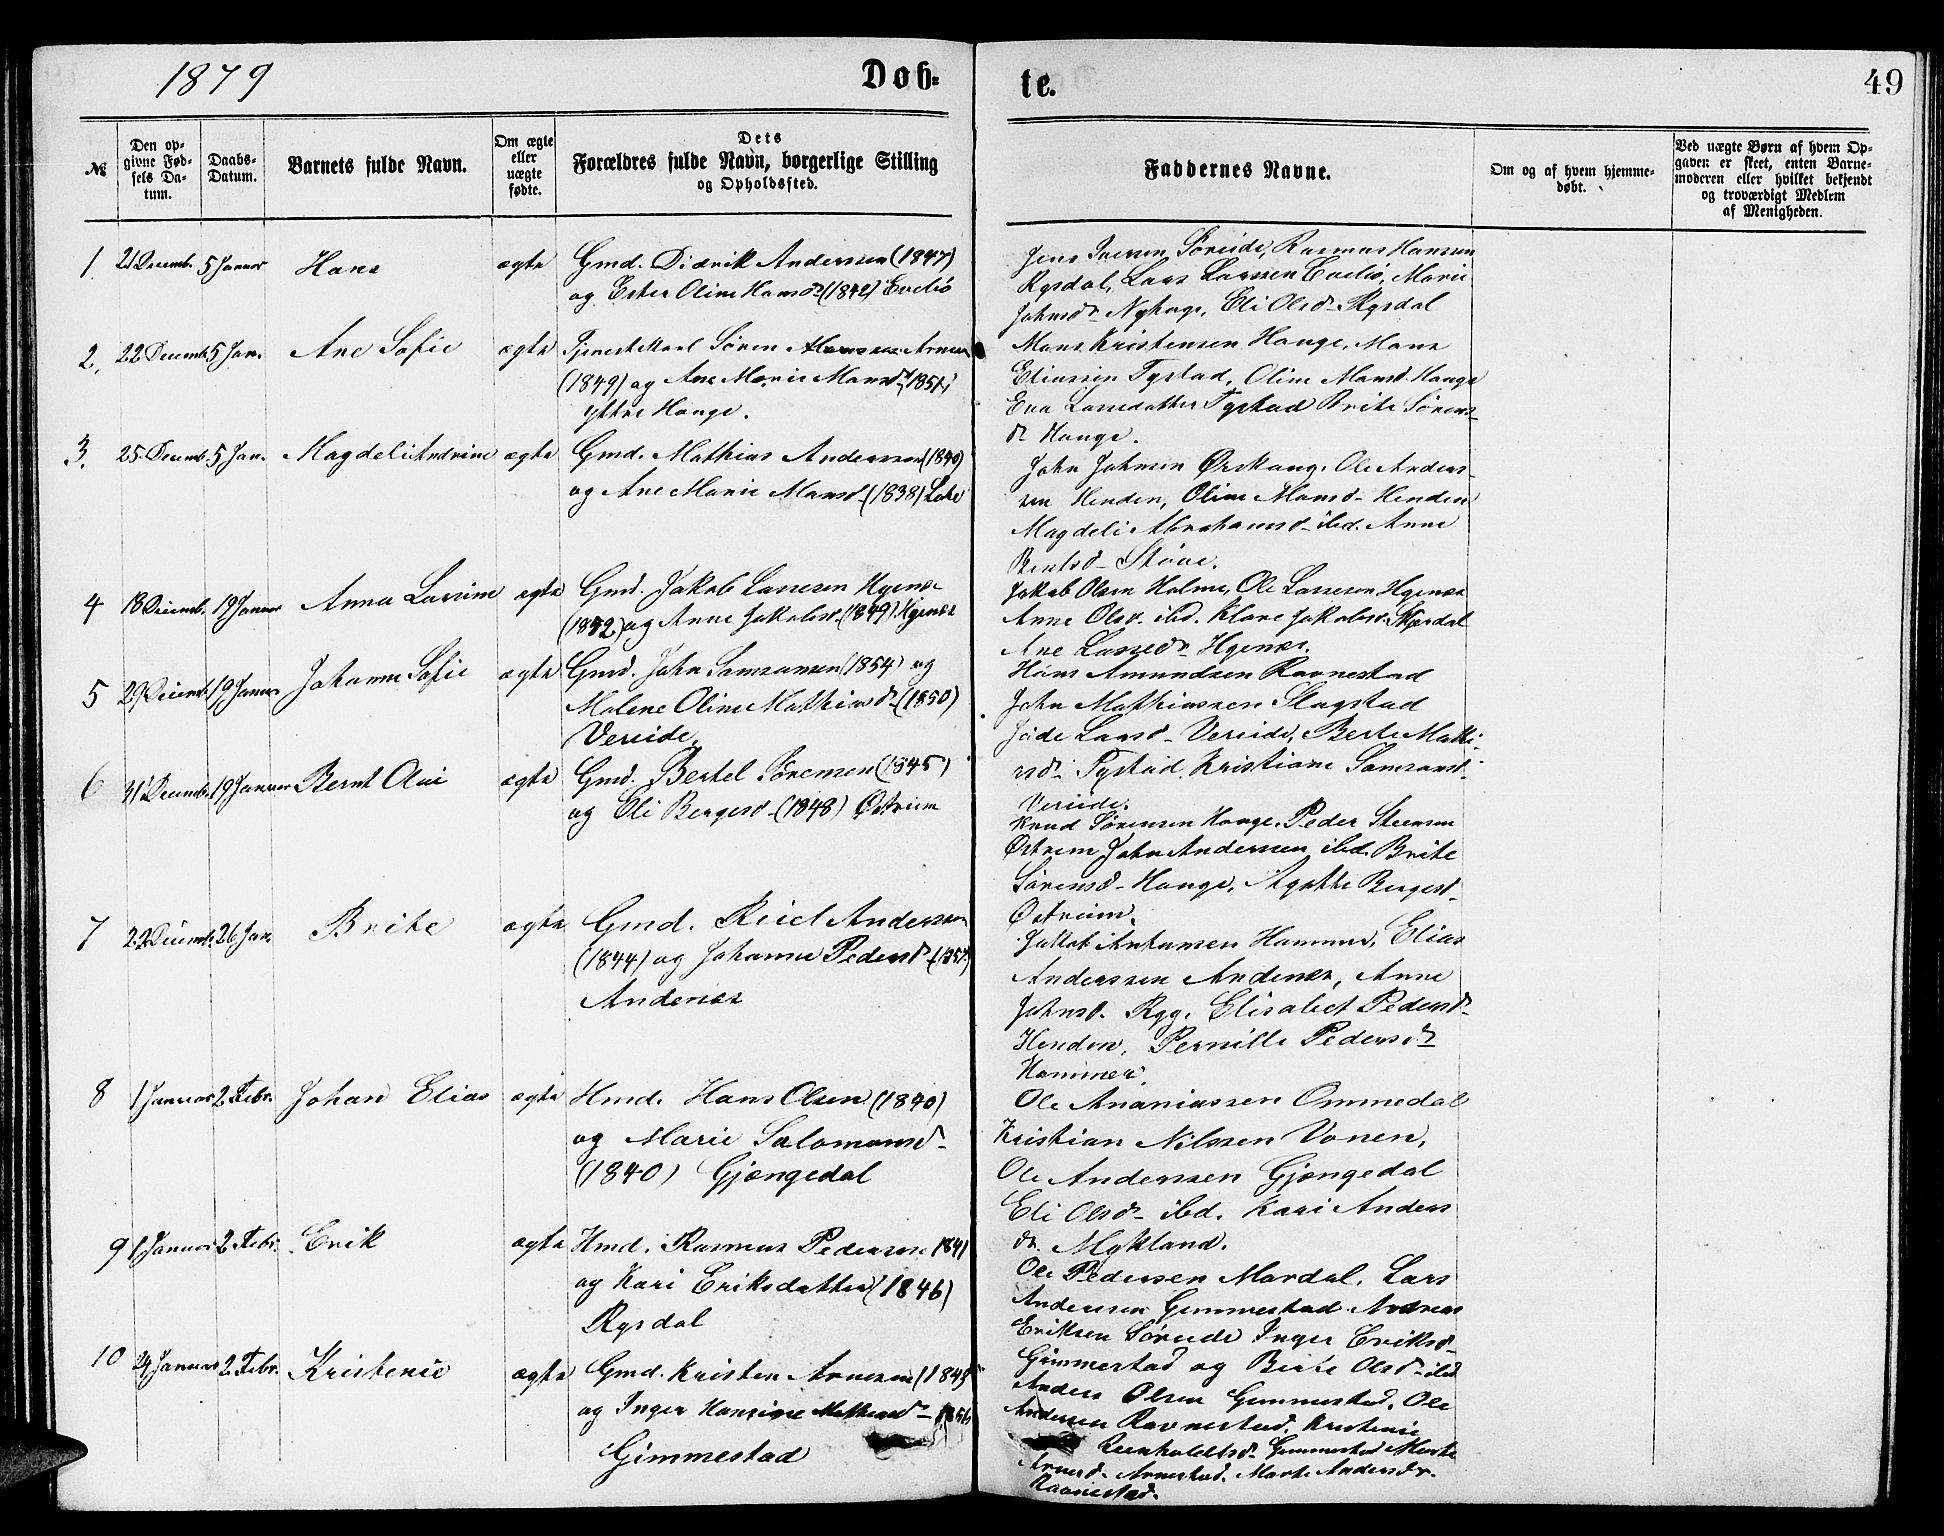 1879
Døb-
te.
49
№
Den opgivne Fødsels Datum.
Daabs-Datum.
Barnets fulde Navn.
Om ægte eller uægte fødte.
Dets
Forældres fulde Navn, borgerlige Stilling
og Opholdssted.
Faddernes Navne.
Om og af hvem hjemmedøbt.
Ved uægte Børn af hvem Opgaven er skeet, enten Barnemoderen eller hvilket bekjendt og troværdigt Medlem af Menigheden.
1. 21 Decemb. 5 Januar Hans ægte Gmd. Didrik Anderssen (1847)
og Ester Oline Hansd. (1842)
Jens Iversen Søreide, Rasmus Hanssen
Rysdal, Lars Larssen Marie
Johnsd. Nyhage, Eli Olsd. Rysdal
2. 22 Decemb. 5 Jan. Ane Sofie ægte Tjenestekarl Søren Arnesen
(1849) og Ane Marie Mansd. (1851)
Yttre Hauge.
Mons Kristensen Hauge, Mons
Eliassen Tystad, Oline Mansd. Hauge
Eva Larsdatter Tystad Brite Sørens-
dr Hauge.
3. 25 Decemb. 5 Jan. Magdeli Andrine ægte Gmd. Mathias Anderssen (1840)
og Ane Marie Mansd. (1838) Lote
John Johnsen Ørskaug. Ole Anders-
sen Henden, Oline Mansd. Henden
Magdeli Abrahamsd. ibd. Anne
Bentsd. Støve.
4 18 Decemb. 19 Januar Anna Larsine ægte Gmd. Jakob Lassesen Hyenes
(1852) og Anne Jakobsd. (1849) Hyenes
Jakob Olsen Holme, Ole Lassesen Hyenes
Anne Olsd. ibd. Klare Jakobsd. Skjerdal
Ane Lassed. Hyenes.
5 29 Decemb. 19 Januar Johanne Sofie ægte Gmd. John Samsonsen (1854) og
Malene Oline Mathiasd. (1850)
Vereide
Hans Amundsen Ravnestad
John Mathiassen Slagstad
Larsd. Vereide, Berte Mathi-
asd. Tystad, Kristiane Samsonsd.
Vereide.
6 31 Decemb. 19 Januar Bernt Olai ægte Gmd. Bertel Sørensen (1845)
og Eli Bergesd. (1848) Østrem
Knud Sørensen Hauge. Peder Steensen
Østrem John Anderssen ibd. Brite
Sørensd. Hauge, Agathe Bergesd.
Østreim.
7 22 Decemb. 26 Jan. Brite ægte Gmd. Reiel Anderssen
(1844) og Johanne Pedersd. (1851)
Andenes
Jakob Antonsen Hammer, Elias
Anderssen Andenes, Anne
Johnsd. Ryg. Elisabet Pedersd.
Henden, Pernille Pedersd.
Hammer.
8 1 Januar 2 Febr. Johan Elias ægte Hmd. Hans Olsen (1840)
og Marie Salomonsd.
(1840) Gjengedal
Ole Ananiassen Ommedal
Kristian Nilssen Vonen,
Ole Anderssen Gjengedal
Eli Olsd. ibd. Kari Anders
dr. Mykland.
9 1 Januar 2 Febr. Erik ægte Hmd. Rasmus Pedersen 1841
og Kari Eriksdatter (1846)
Rysdal
Ole Pedersen Mardal, Lars
Andersen Gimmestad. Andreas
Eriksen Søreide Inger Eriksd.
Gimmestad og Berte Olsd. ibd
10 24 Januar 2 Febr. Kristense ægte Gmd. Kristen Arnesen (1849
og Inger Hansine Mathiasd. 1856
Gimmestad
Anders Olsen Gimmestad. Ole
Andersen Ravnestad. Kristense
Reinholdtsd. Gimmestad Marte
Arnesd. Arnestad. Marte Andersdr.
Ravnestad.